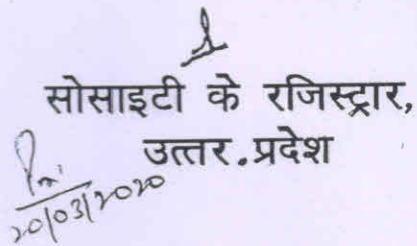 सोसाइटी के रजिस्ट्रार,
उत्तर.प्रदेश
20/03/2020